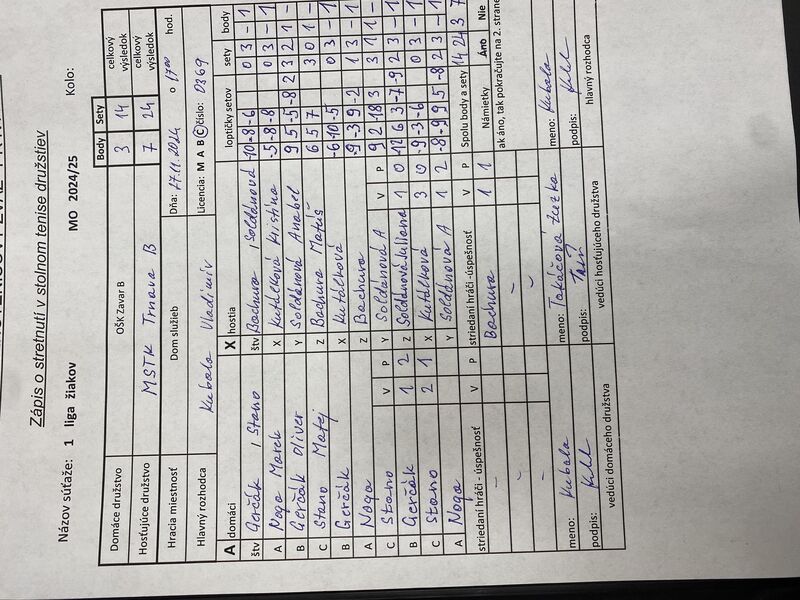 Zápis o stretnutí v stolnom tenise družstiev
Názov súťaže: 1 liga žiakov MO 2024/25 Kolo:
Domáce družstvo OŠK Zavar B Body Sety celkový výsledok
3 14
Hosťujúce družstvo MSTK Trnava B 7 24 celkový výsledok
Hracia miestnosť Dom služieb Dňa: 27.11.2024 o 1700 hod.
Hlavný rozhodca Kubala Vladimír Licencia: M A B C číslo: 0369
A domáci X hostia loptičky setov sety body
štv Gerčák / Stano štv Bachura / Soldánová -10 -8 -6 0 3 - 1
A Noga Marek X Kutálková Kristína -5 -8 -8 0 3 - 1
B Gerčák Oliver Y Soldánová Anabel 9 5 -5 -8 2 3 2 1 -
C Stano Matej Z Bachura Matúš 6 5 7 3 0 1 -
B Gerčák X Kutálková -6 -10 -5 0 3 - 1
A Noga Z Bachura -9 -3 9 -2 1 3 - 1
C Stano V P Y Soldánová A V P 9 2 -18 3 3 1 1 -
B Gerčák 1 2 Z Soldánová Juliana 1 0 -12 6 3 -7 -9 2 3 - 1
C Stano 2 1 X Kutálková 3 0 -9 -3 -6 0 3 - 1
A Noga Y Soldánová A 1 2 -8 -9 9 5 -8 2 3 - 1
striedaní hráči - úspešnosť V P striedaní hráči -úspešnosť V P Spolu body a sety 14 24 3 7
Bachura 1 1 Námietky Áno Nie
ak áno, tak pokračujte na 2. strane
meno: Kubala meno: Takáčová Zuzka meno: Kubala
podpis: podpis: podpis:
vedúci domáceho družstva vedúci hosťujúceho družstva hlavný rozhodca